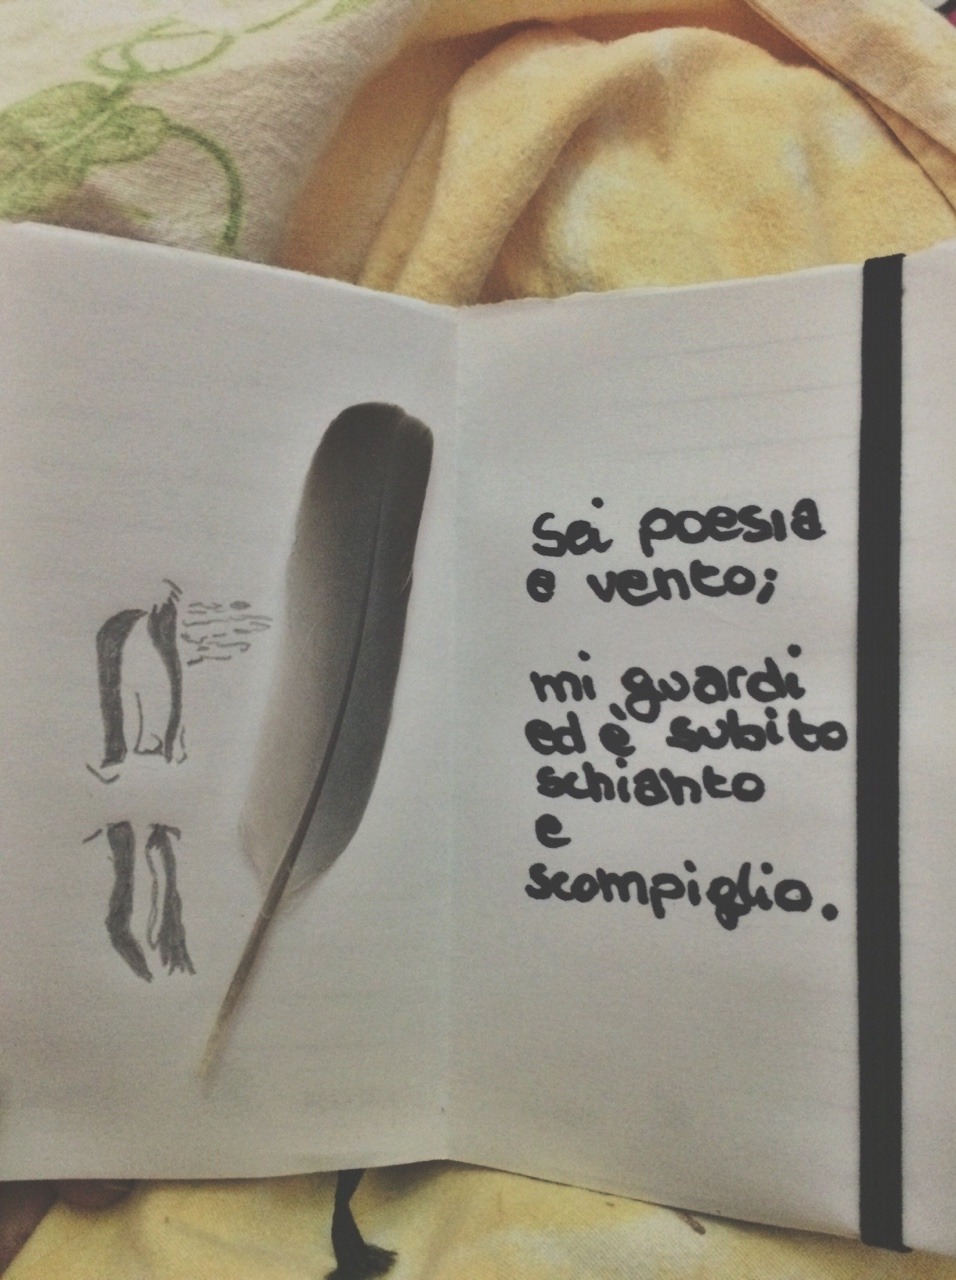 Sei poesia
e vento;
mi guardi
ed è subito
schianto
e
scompiglio.